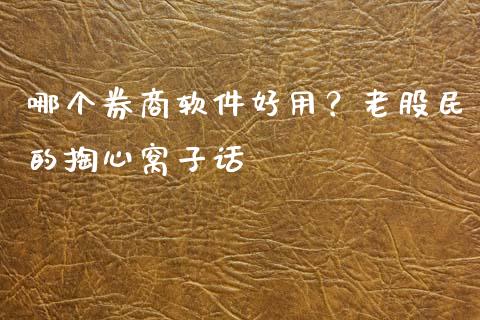 哪个券商软件好用？老股民
的掏心窝子话